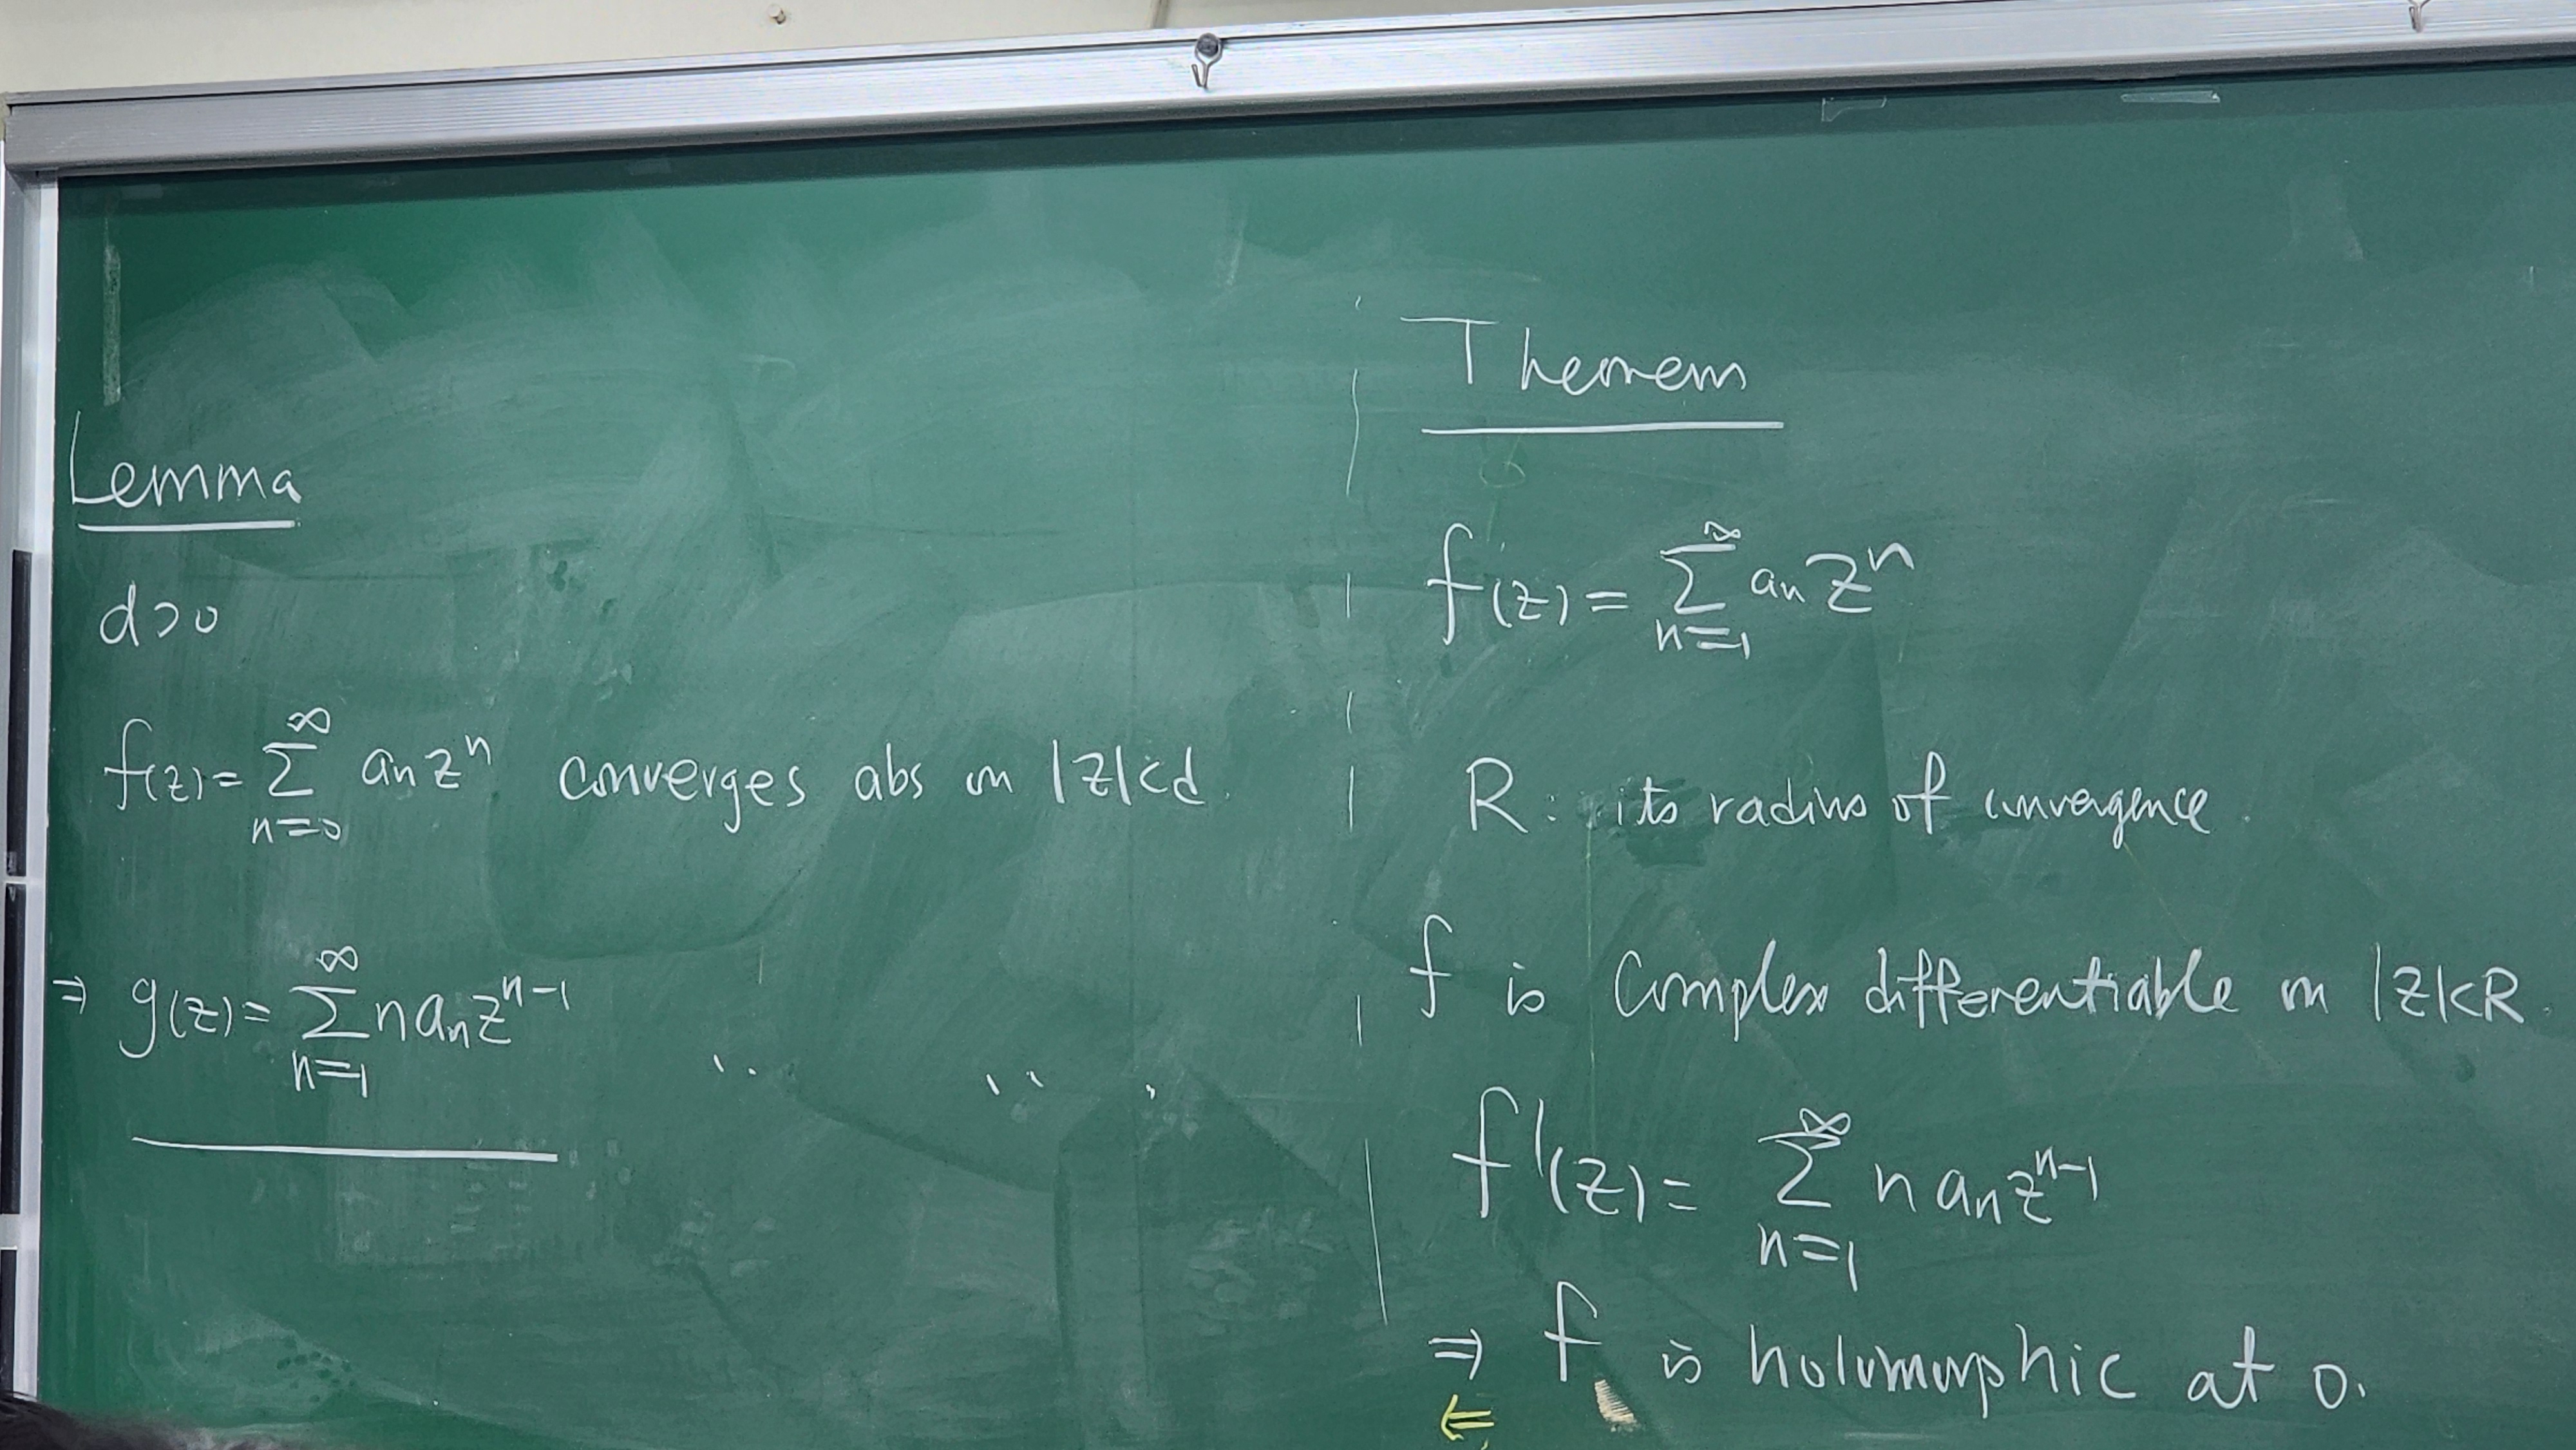 Lemma
d>0
f(z) = ∑_{n=0}^{∞} a_n z^n converges abs on |z|<d.
⇒ g(z) = ∑_{n=1}^{∞} n a_n z^{n-1} 〃 〃 .
Theorem
f(z) = ∑_{n=1}^{∞} a_n z^n
R: its radius of convergence.
f is complex differentiable on |z|<R.
f'(z) = ∑_{n=1}^{∞} n a_n z^{n-1}
⇒ f is holomorphic at 0.
⇐